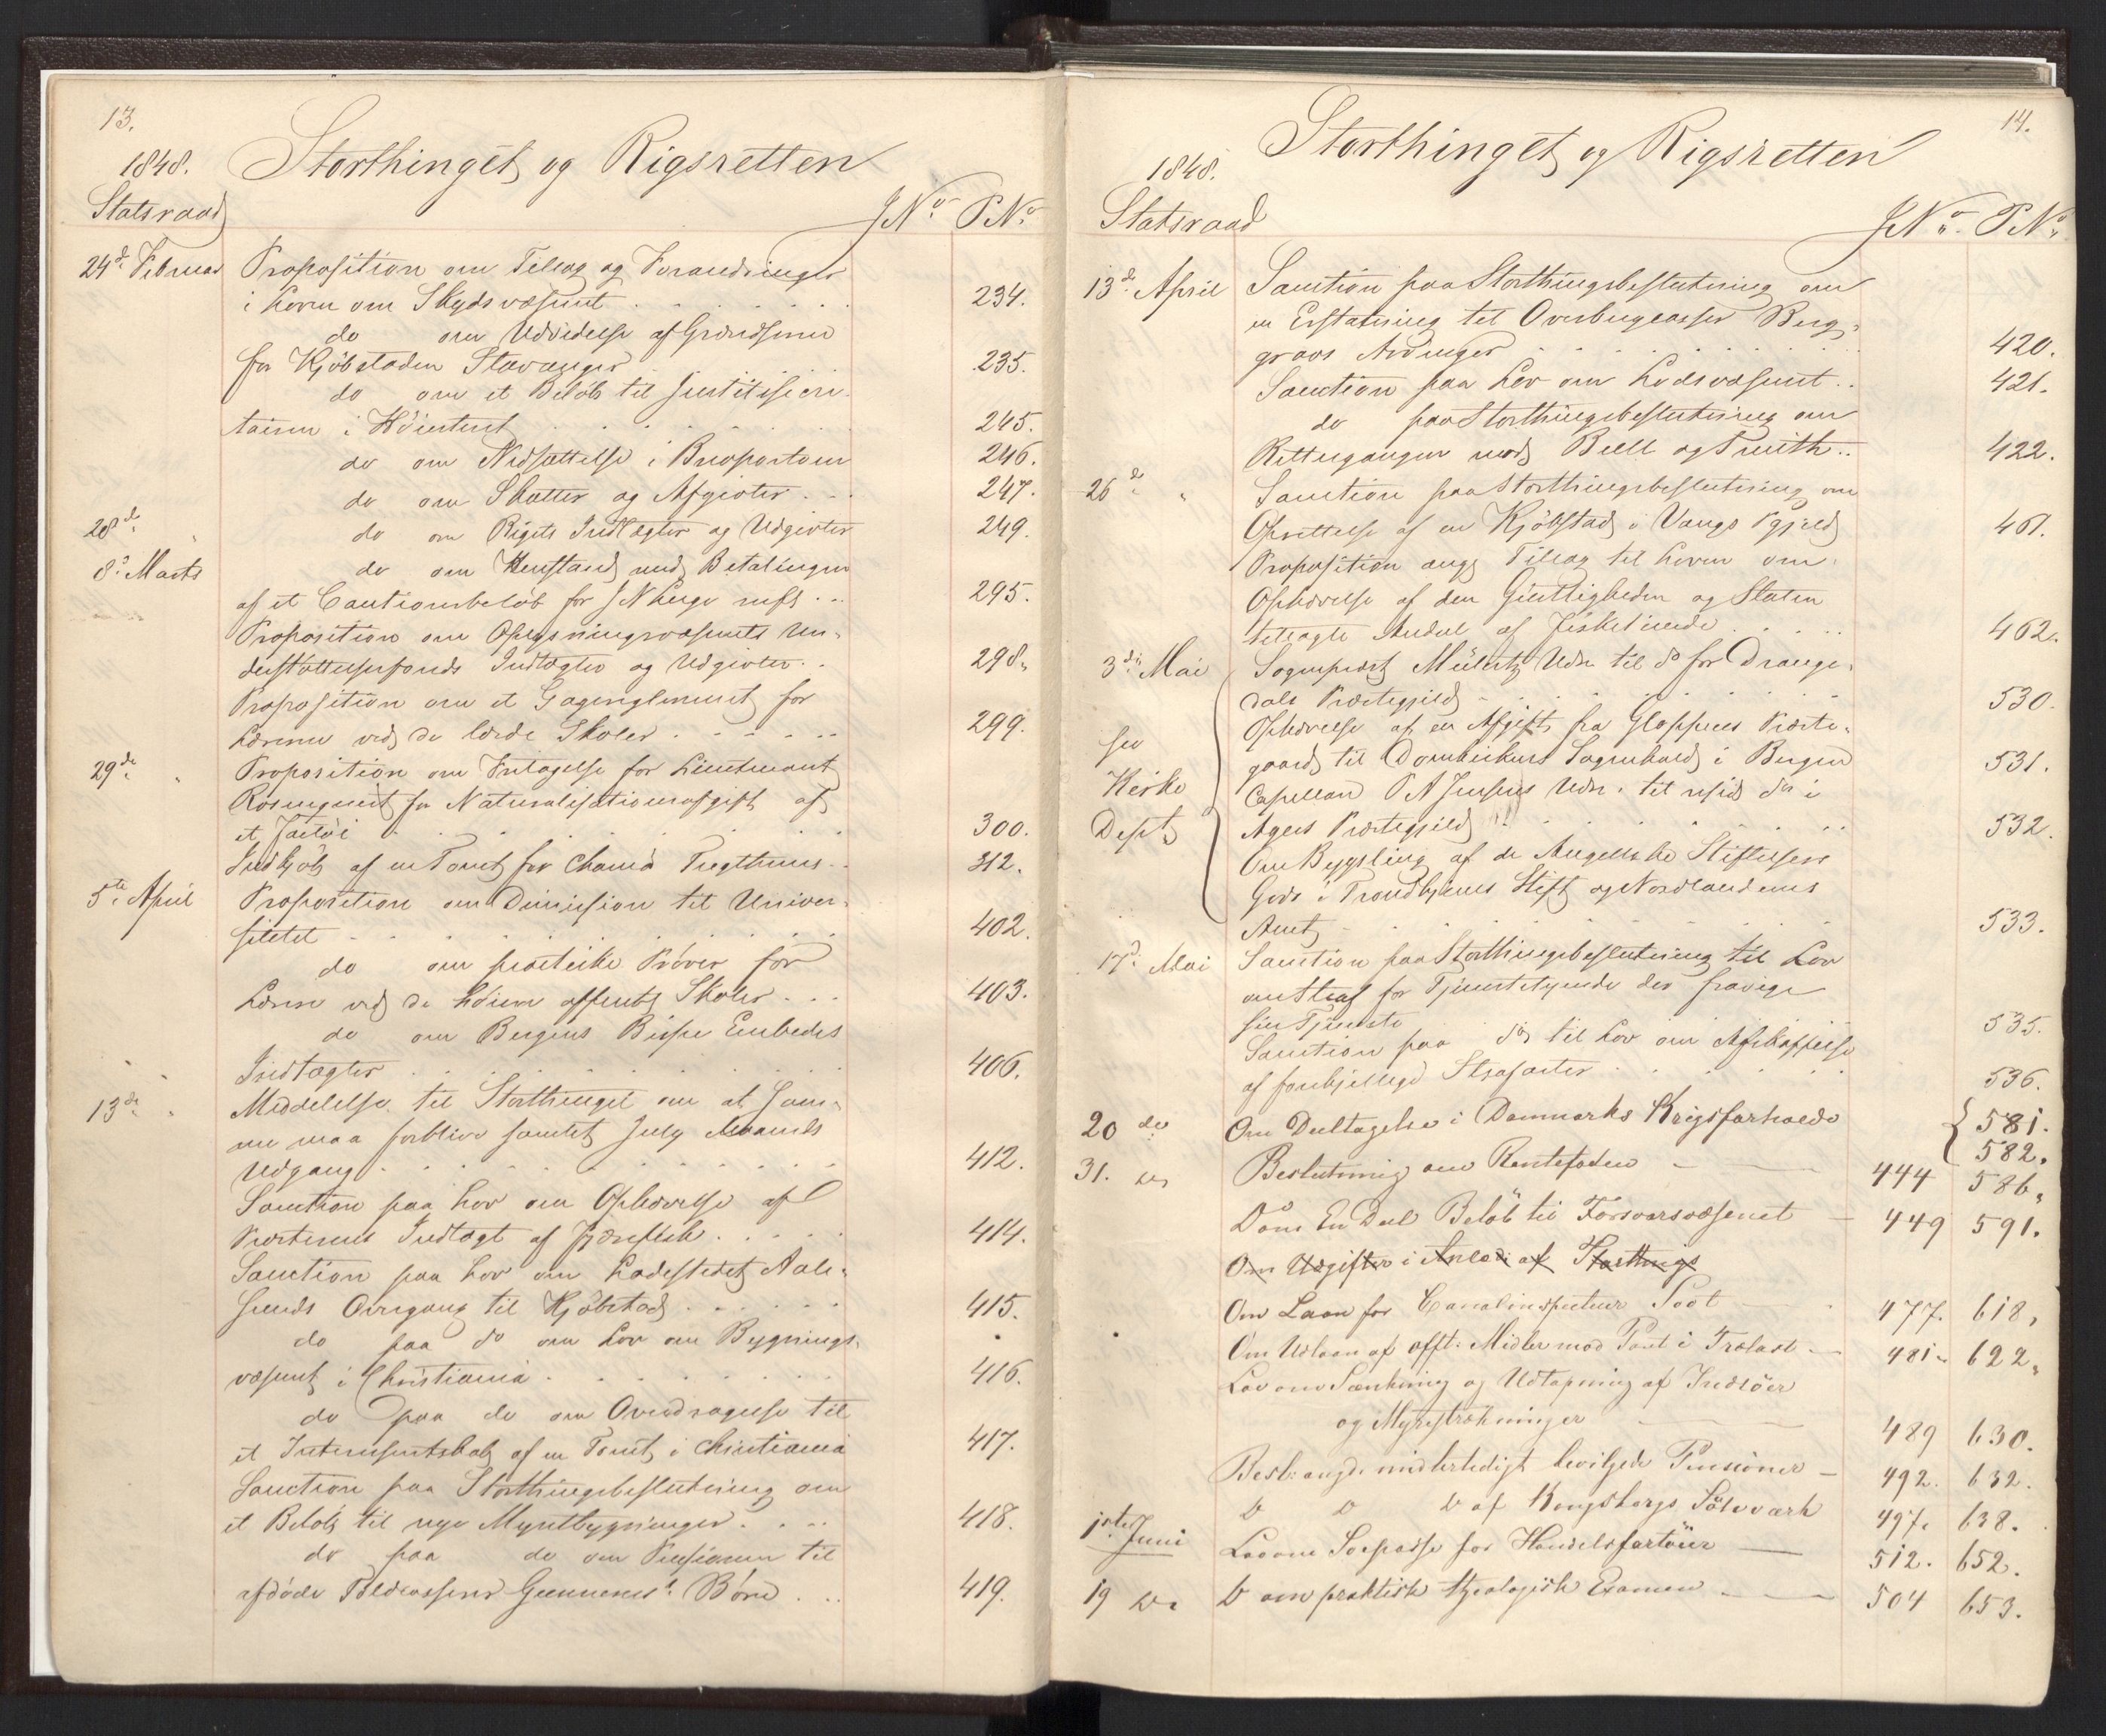 13.
1848. Storthinget og Rigsretten
Statsraad JNo. PNo.
24de Februar Proposition om Tillæg og Forandringer
i Loven om Skydsvæsenet . . . 234.
do om Udvidelse af Grændserne
for Kjöbstaden Stavanger 235.
do om et Beløb til
i 245.
do om Nedsættelse i Brevportoen 246.
do om Skatter og Afgivter . . . 247.
28de " do om Rigets Indtægter og Udgivter 249.
8de Marts do om Henstand med Betalingen
af et Cautionsbeløb for . . . 295.
Proposition om Oplysningsvæsenets Un-
derstøttelsesfonds Indtægter og Udgivter . . 298.
Proposition om et Gagereglement for
Lærerne ved de lærde Skoler . . . . . 299.
29de " Proposition om Fritagelse for Lieutenant
Rosenquist for Naturalisationsafgift af
et Fartøi . . . 300.
Indkjöb af en Tomt for Chania Tugthuus . . 312.
5te April Proposition om Dimission til Univer-
sitetet . . . 402.
do om practiske Prøver for
Lærere ved de høiere offentl. Skoler . . . 403.
do om Bergens Bispe Embedes
Indtægter . . . 406.
13de " Meddelelse til Storthinget om at Sam-
me maa forblive samlet July Maaneds
Udgang . . . 412.
Sanction paa Lov om Ophævelse af
Præsternes Indtægt af . . . 414.
Sanction paa Lov om Ladestedet Aale-
sunds Overgang til Kjöbstad . . . 415.
do paa do om Lov om Bygnings-
væsenet i Christiania . . . 416.
do paa do om Overdragelse til
et Interessentskab af en Tomt i Christiania 417.
Sanction paa Storthingsbeslutning om
et Beløb til nye Myntbygninger . . . 418.
do paa do om Pensionen til
afdöde Toldcasserer Børn . . 419.
14.
1848. Storthinget og Rigsretten
Statsraad JNo. PNo.
13de April Sanction paa Storthingsbeslutning om
en Erstatning til Overbergcasserer Berg-
gravs Arvinger . . . 420.
Sanction paa Lov om Lodsvæsenet . . 421.
do paa Storthingsbeslutning om
Rettergangen mod Bell og Smith . . 422.
26de " Sanction paa Storthingsbeslutning om
Oprettelse af en Kjöbstad i Vangs Pgjeld 461.
Proposition angd Tillæg til Loven om
Ophævelse af den Geistligheden og Staten
tillagte Andel af Fisketiende . . . 462.
3die Mai Sognepræst Müllertz Udn. til do for Drange-
dals Præstegjeld . . . 530.
Ophævelse af en Afgift fra Gloppens Præste-
see gaard til Domkirkens Sognekald i Bergen 531.
Kirke Capellan P A Jensens Udn. til resid. do i
Dept. Agers Præstegjeld . . . 532.
Om Bygsling af de Angellske Stiftelsers
Gods i Trondhjems Stift og Nordlandenes
Amt . . . 533.
17de Mai Sanction paa Storthingsbeslutning til Lov
om Straf for Tjenestetyende der fravige
sin Tjeneste 535.
Sanction paa do til Lov om Afskaffelse
af forskjellige Straffarter . . . 536.
20de Om Deeltagelse i Danmarks Krigsforholde { 581.
582.
31. do Beslutning om Rentefoden — 444 586.
Do om En Deel Beløb til Forsvarsvæsenet — 449 591.
Om Udgifter i Anledn. af Storthings
Om Laan for Canalinspecteur Soot 477. 618.
Om Udlaan af offt. Midler mod Pant i Trælast — 481. 622.
Lov om Sænkning og Udtapning af Indsøer
og Myrstrækninger — 489 630.
Besl. angd. midlertidigt bevilgede Pensioner — 492. 632.
D D D af Kongsbergs Sölvværk 497. 638.
1ste Juni Lov om Söepasse for Handelsfartöier — 512. 652.
19 do D om praktisk theologisk Examen — 504 653.